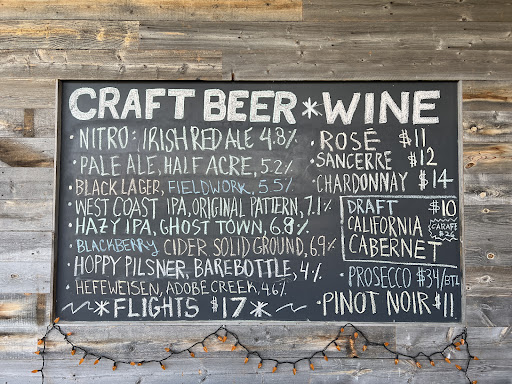 CRAFT BEER * WINE
• NITRO: IRISH RED ALE 4.8%
• PALE ALE, HALF ACRE, 5.2%
• BLACK LAGER, FIELDWORK, 5.5%
• WEST COAST IPA, ORIGINAL PATTERN, 7.1%
• HAZY IPA, GHOST TOWN, 6.8%
• BLACKBERRY CIDER, SOLID GROUND, 6.9%
• HOPPY PILSNER, BAREBOTTLE, 4.%
• HEFFEWEISEN, ADOBE CREEK, 4.6%
* FLIGHTS $17 *
• ROSÉ $11
• SANCERRE $12
• CHARDONNAY $14
DRAFT $10
CALIFORNIA
CABERNET
CARAFE
• PROSECCO $34/BTL
• PINOT NOIR $11